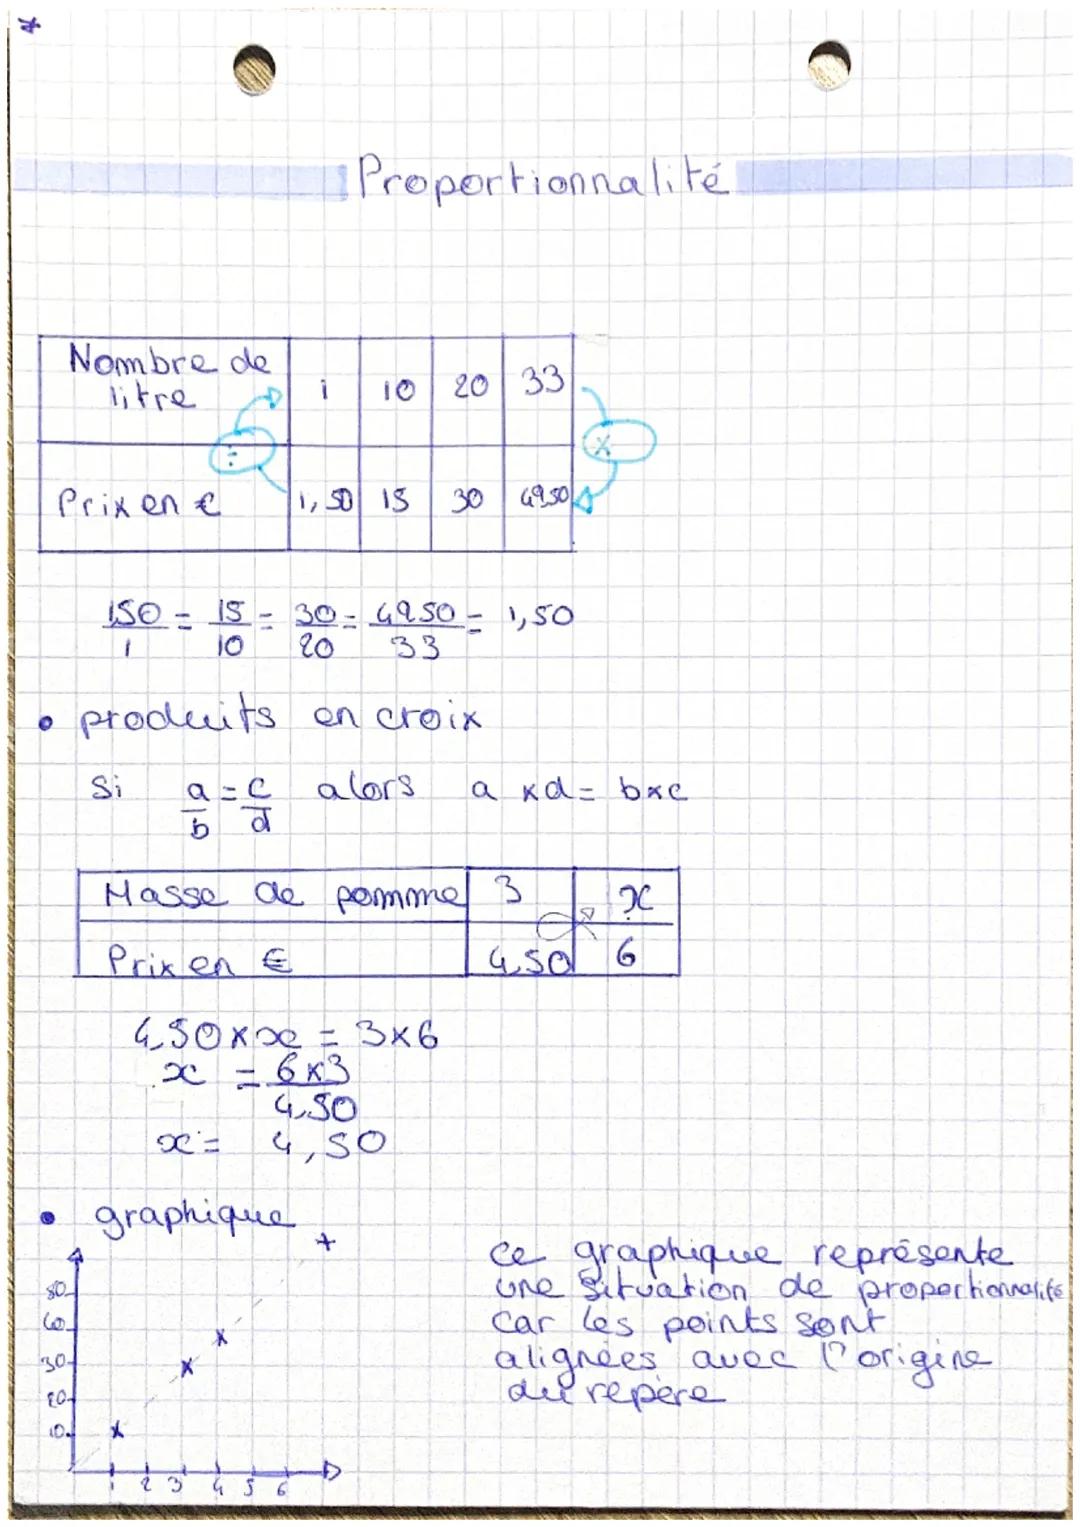 Proportionnalité
Nombre de litre 1 10 20 33
÷ x
Prix en € 1,50 15 30 49.50
1,50/1 = 15/10 = 30/20 = 49.50/33 = 1,50
• produits en croix
Si a/b = c/d alors a x d = b x c
Masse de pomme 3 x
Prix en € 4,50 6
4,50 x x = 3 x 6
x = 6 x 3/4,50
x = 4,50
• graphique
ce graphique représente
une situation de proportionnalité
car les points sont
alignées avec l'origine
du repère
30
20
10
1 2 3 4 5 6